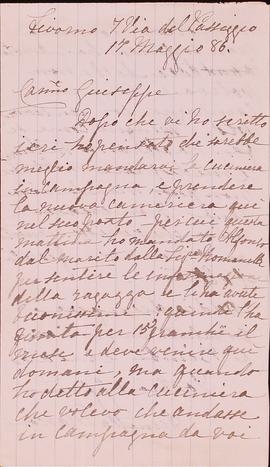 Livorno 7 Via del Passeggio
17. Maggio 86.
Carmo Giuseppe
Dopo che vi ho scritto
ieri ho pensato che sarebbe
meglio mandarvi la cuciniera
in campagna, e prendere
la nuova cameriera qui
nel suo posto per cui questa
mattina ho mandato
dal marito dalla Sigra Romanelli
per sentire le
della ragazza e li ha avute
buonissime quindi ha
per 15 franchi il
mese e deve venire qui
domani, ma quando
ho detto alla cuciniera
che volevo che andasse
in campagna da voi